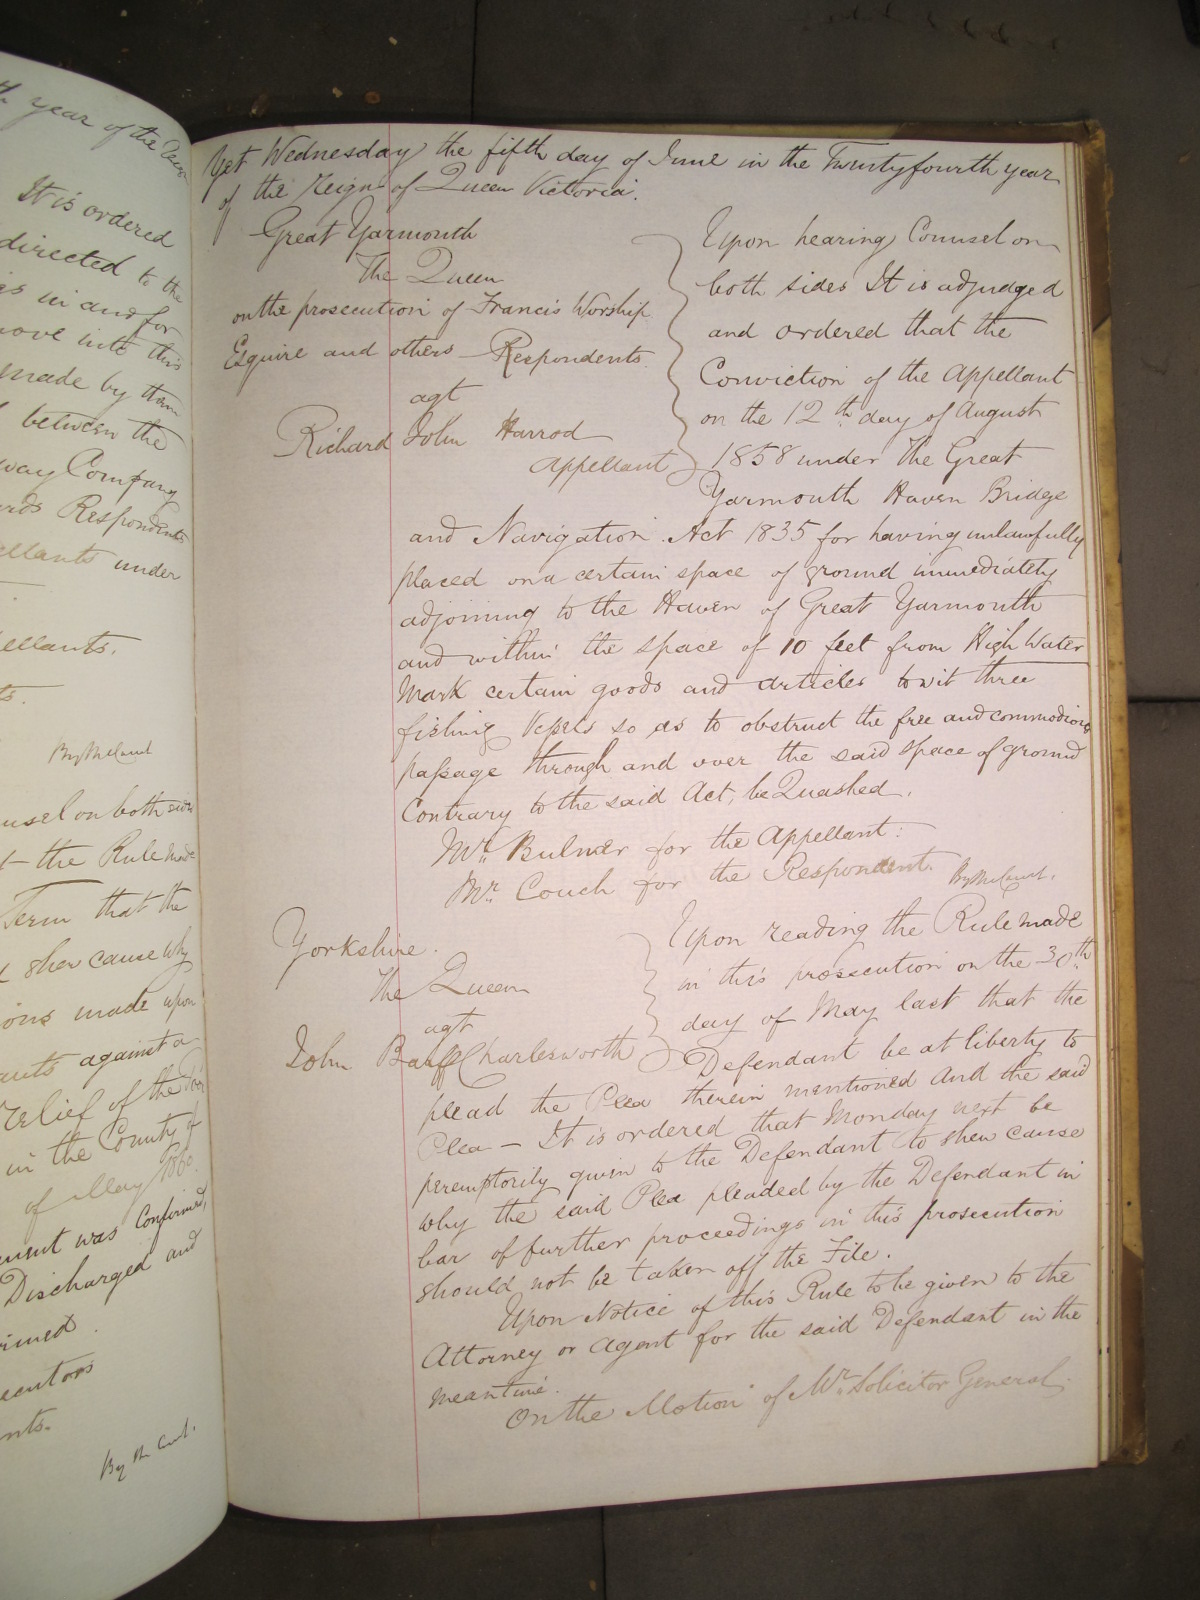 th year of the Queen
It is ordered
directed to the
in and for
move into this
made by them
between the
way Company
Respondents
ellants under
ellants.
ts.
By the Court
unsel on both sides
the Rule made
Term that the
shew cause why
ions made upon
ants against a
relief of the Poor
in the County of
of May 1860.
ment was Confirmed,
Discharged and
irmed
ecutors
nts.
By the Court.
Yet Wednesday the fifth day of June in the Twentyfourth year
of the reign of Queen Victoria.
Great Yarmouth
The Queen
on the prosecution of Francis Worship
Esquire and others Respondents
agt
Richard John Harrod
Appellant
Upon hearing Counsel on
both sides It is adjudged
and ordered that the
Conviction of the Appellant
on the 12th day of August
1858 under the Great
Yarmouth Haven Bridge
and Navigation Act 1835 for having unlawfully
placed on a certain space of ground immediately
adjoining to the Haven of Great Yarmouth
and within the space of 10 feet from High Water
Mark certain goods and articles towit three
fishing Vessels so as to obstruct the free and commodious
passage through and over the said space of ground
Contrary to the said Act, be Quashed.
Mr. Bulwer for the Appellant.
Mr. Couch for the Respondent.
By the Court.
Yorkshire.
The Queen
agt
John Barff Charlesworth
Upon reading the Rule made
in this prosecution on the 30th
day of May last that the
Defendant be at liberty to
plead the Plea therein mentioned And the said
Plea – It is ordered that Monday next be
peremptorily given to the Defendant to shew cause
why the said Plea pleaded by the Defendant in
bar of further proceedings in this prosecution
should not be taken off the File.
Upon Notice of this Rule to be given to the
Attorney or Agent for the said Defendant in the
meantime.
On the Motion of Mr. Solicitor General.